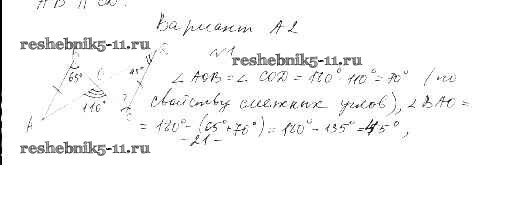 AB || CD.
Вариант А2
reshebnik5-11.ru
№1
reshebnik5-11.ru
B
C
65°
O
45°
110°
A
D
∠AOB = ∠COD = 180° 110° = 70° (по
свойству смежных углов), ∠BAO =
= 180° - (65° + 70°) = 180° - 135° = 45°,
-21-
reshebnik5-11.ru
reshebnik5-11.ru